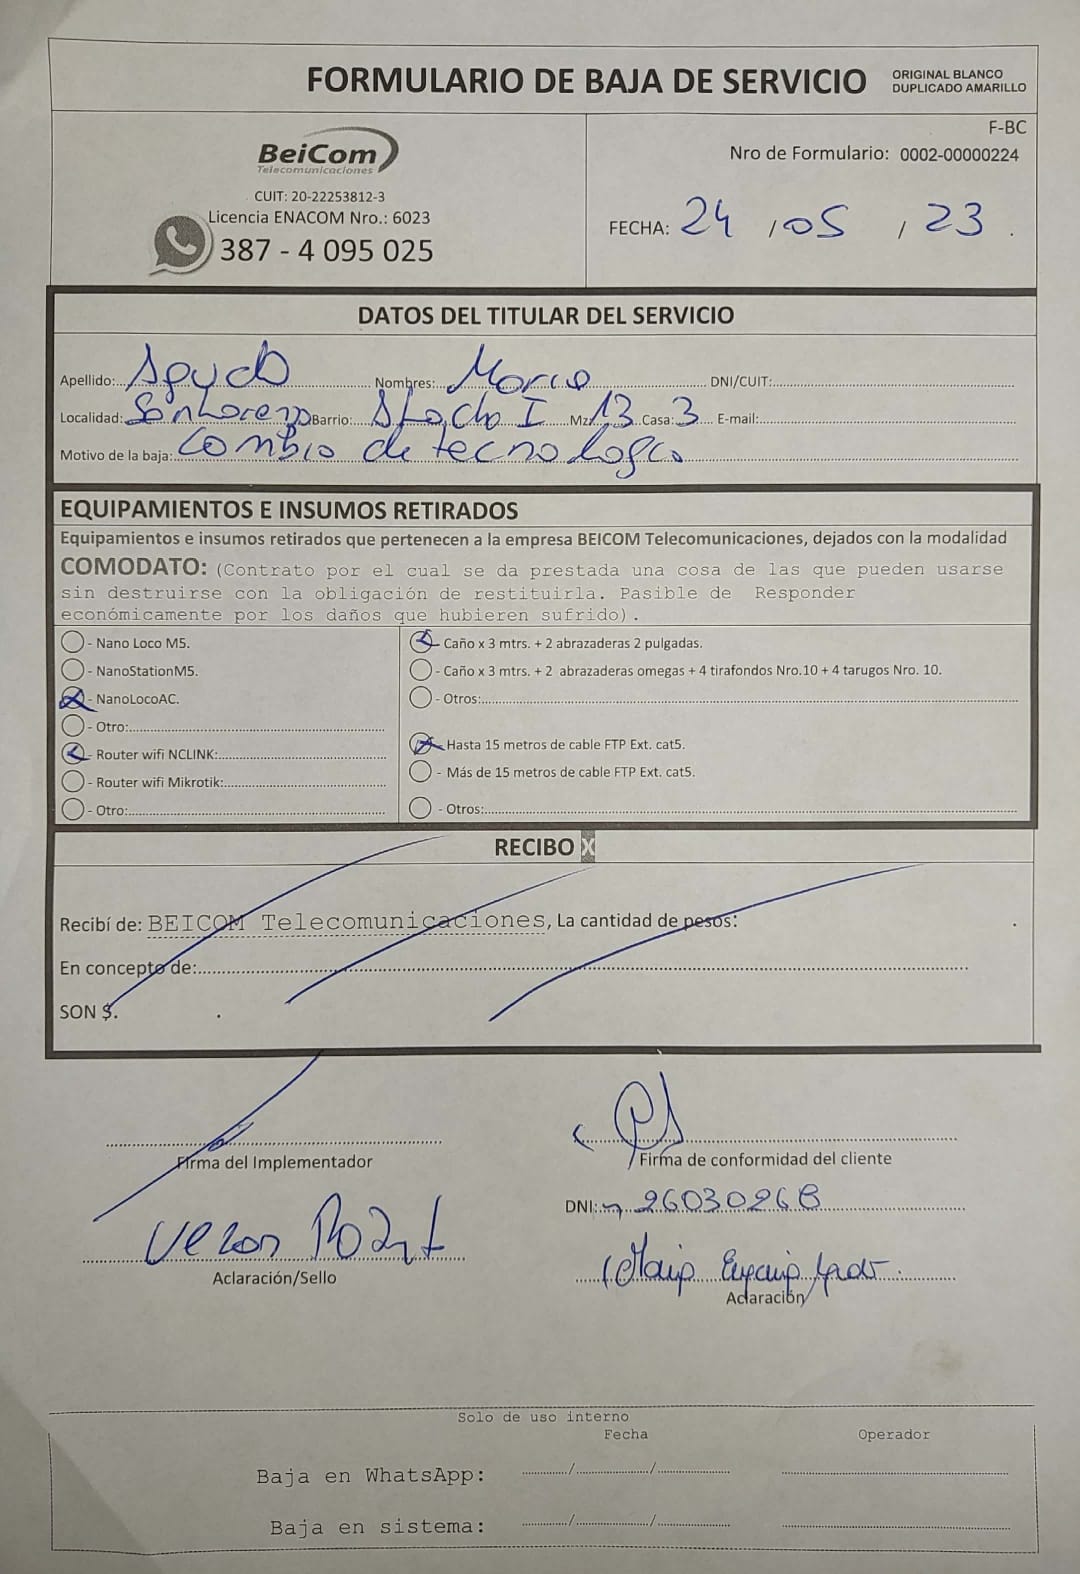 FORMULARIO DE BAJA DE SERVICIO
ORIGINAL BLANCO
DUPLICADO AMARILLO
BeiCom
Telecomunicaciones
CUIT: 20-22253812-3
Licencia ENACOM Nro.: 6023
387 - 4 095 025
F-BC
Nro de Formulario: 0002-00000224
FECHA: 24 / 05 / 23 .
DATOS DEL TITULAR DEL SERVICIO
Apellido: Nombres: Maria DNI/CUIT:
Localidad: San Lorenzo Barrio: I Mz: 13 Casa: 3 E-mail:
Motivo de la baja: Cambio de tecnologia
EQUIPAMIENTOS E INSUMOS RETIRADOS
Equipamientos e insumos retirados que pertenecen a la empresa BEICOM Telecomunicaciones, dejados con la modalidad
COMODATO: (Contrato por el cual se da prestada una cosa de las que pueden usarse
sin destruirse con la obligación de restituirla. Pasible de Responder
económicamente por los daños que hubieren sufrido).
- Nano Loco M5.
- NanoStationM5.
- NanoLocoAC.
- Otro:
- Router wifi NCLINK:
- Router wifi Mikrotik:
- Otro:
- Caño x 3 mtrs. + 2 abrazaderas 2 pulgadas.
- Caño x 3 mtrs. + 2 abrazaderas omegas + 4 tirafondos Nro.10 + 4 tarugos Nro. 10.
- Otros:
- Hasta 15 metros de cable FTP Ext. cat5.
- Más de 15 metros de cable FTP Ext. cat5.
- Otros:
RECIBO X
Recibí de: BEICOM Telecomunicaciones, La cantidad de pesos:
En concepto de:
SON $.
Firma del Implementador
Firma de conformidad del cliente
DNI: 26030268
Aclaración/Sello
Aclaración
Solo de uso interno
Fecha Operador
Baja en WhatsApp: / /
Baja en sistema: / /